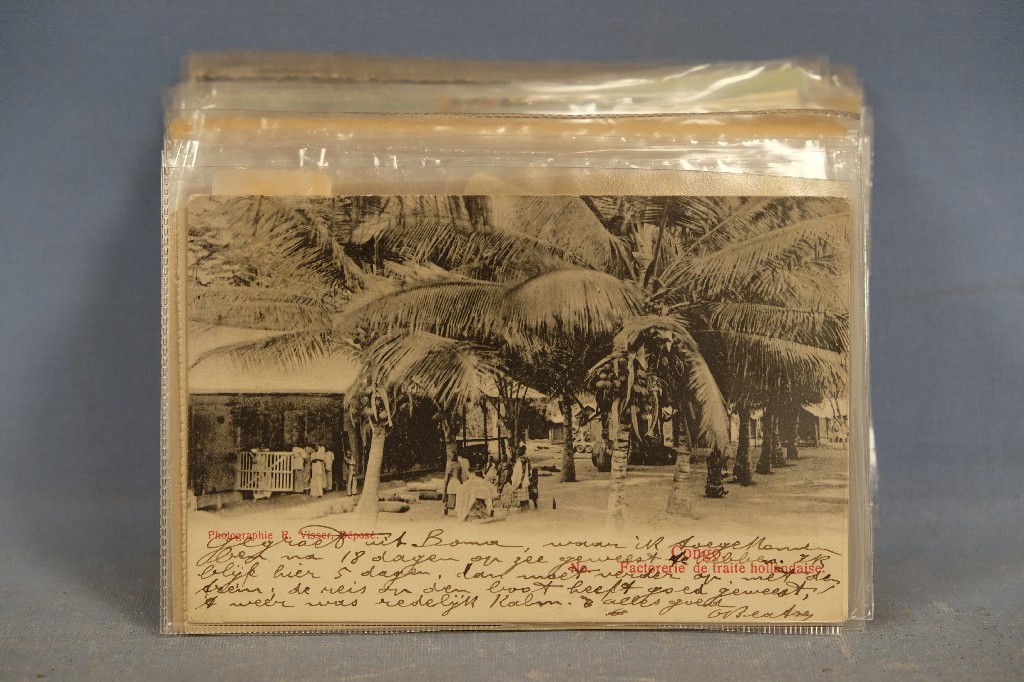 Photographie R. Visser, Déposé.
Congo.
No. Factorerie de traite hollandaise.
Gegroet uit Boma, waar ik aangekomen
ben na 18 dagen op zee geweest te
blijk hier 5 dagen, dan moet verder op met de
trein; de reis op den boot heeft goed geweest,
't weer was redelijk kalm. alles goed